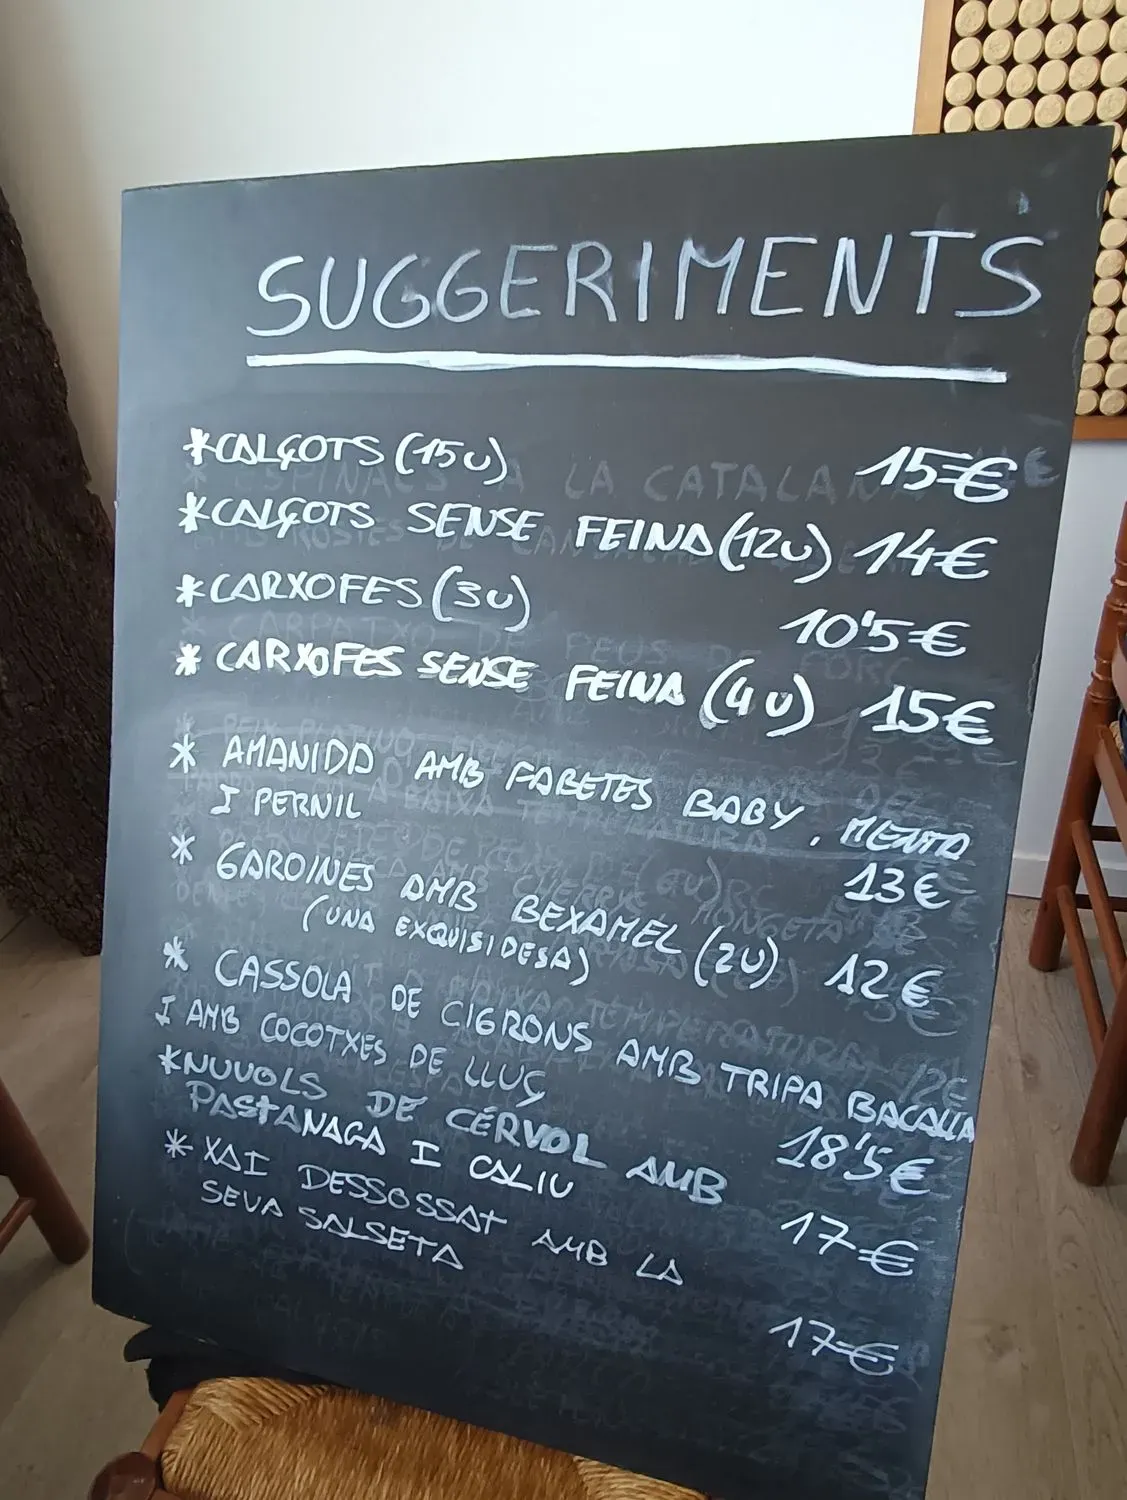 SUGGERIMENTS
*CALÇOTS (15U) 15€
*CALÇOTS SENSE FEINA (12U) 14€
*CARXOFES (3U) 10'5€
* CARXOFES SENSE FEINA (4U) 15€
* AMANIDA AMB FABETES BABY, MENTA
I PERNIL 13€
* GAROINES AMB BEXAMEL (2U) 12€
(UNA EXQUISIDESA)
* CASSOLA DE CIGRONS AMB TRIPA BACALLA
I AMB COCOTXES DE LLUÇ 18'5€
*NUVOLS DE CÉRVOL AMB
PASTANAGA I CALIU 17€
* XAI DESSOSSAT AMB LA
SEVA SALSETA 17€